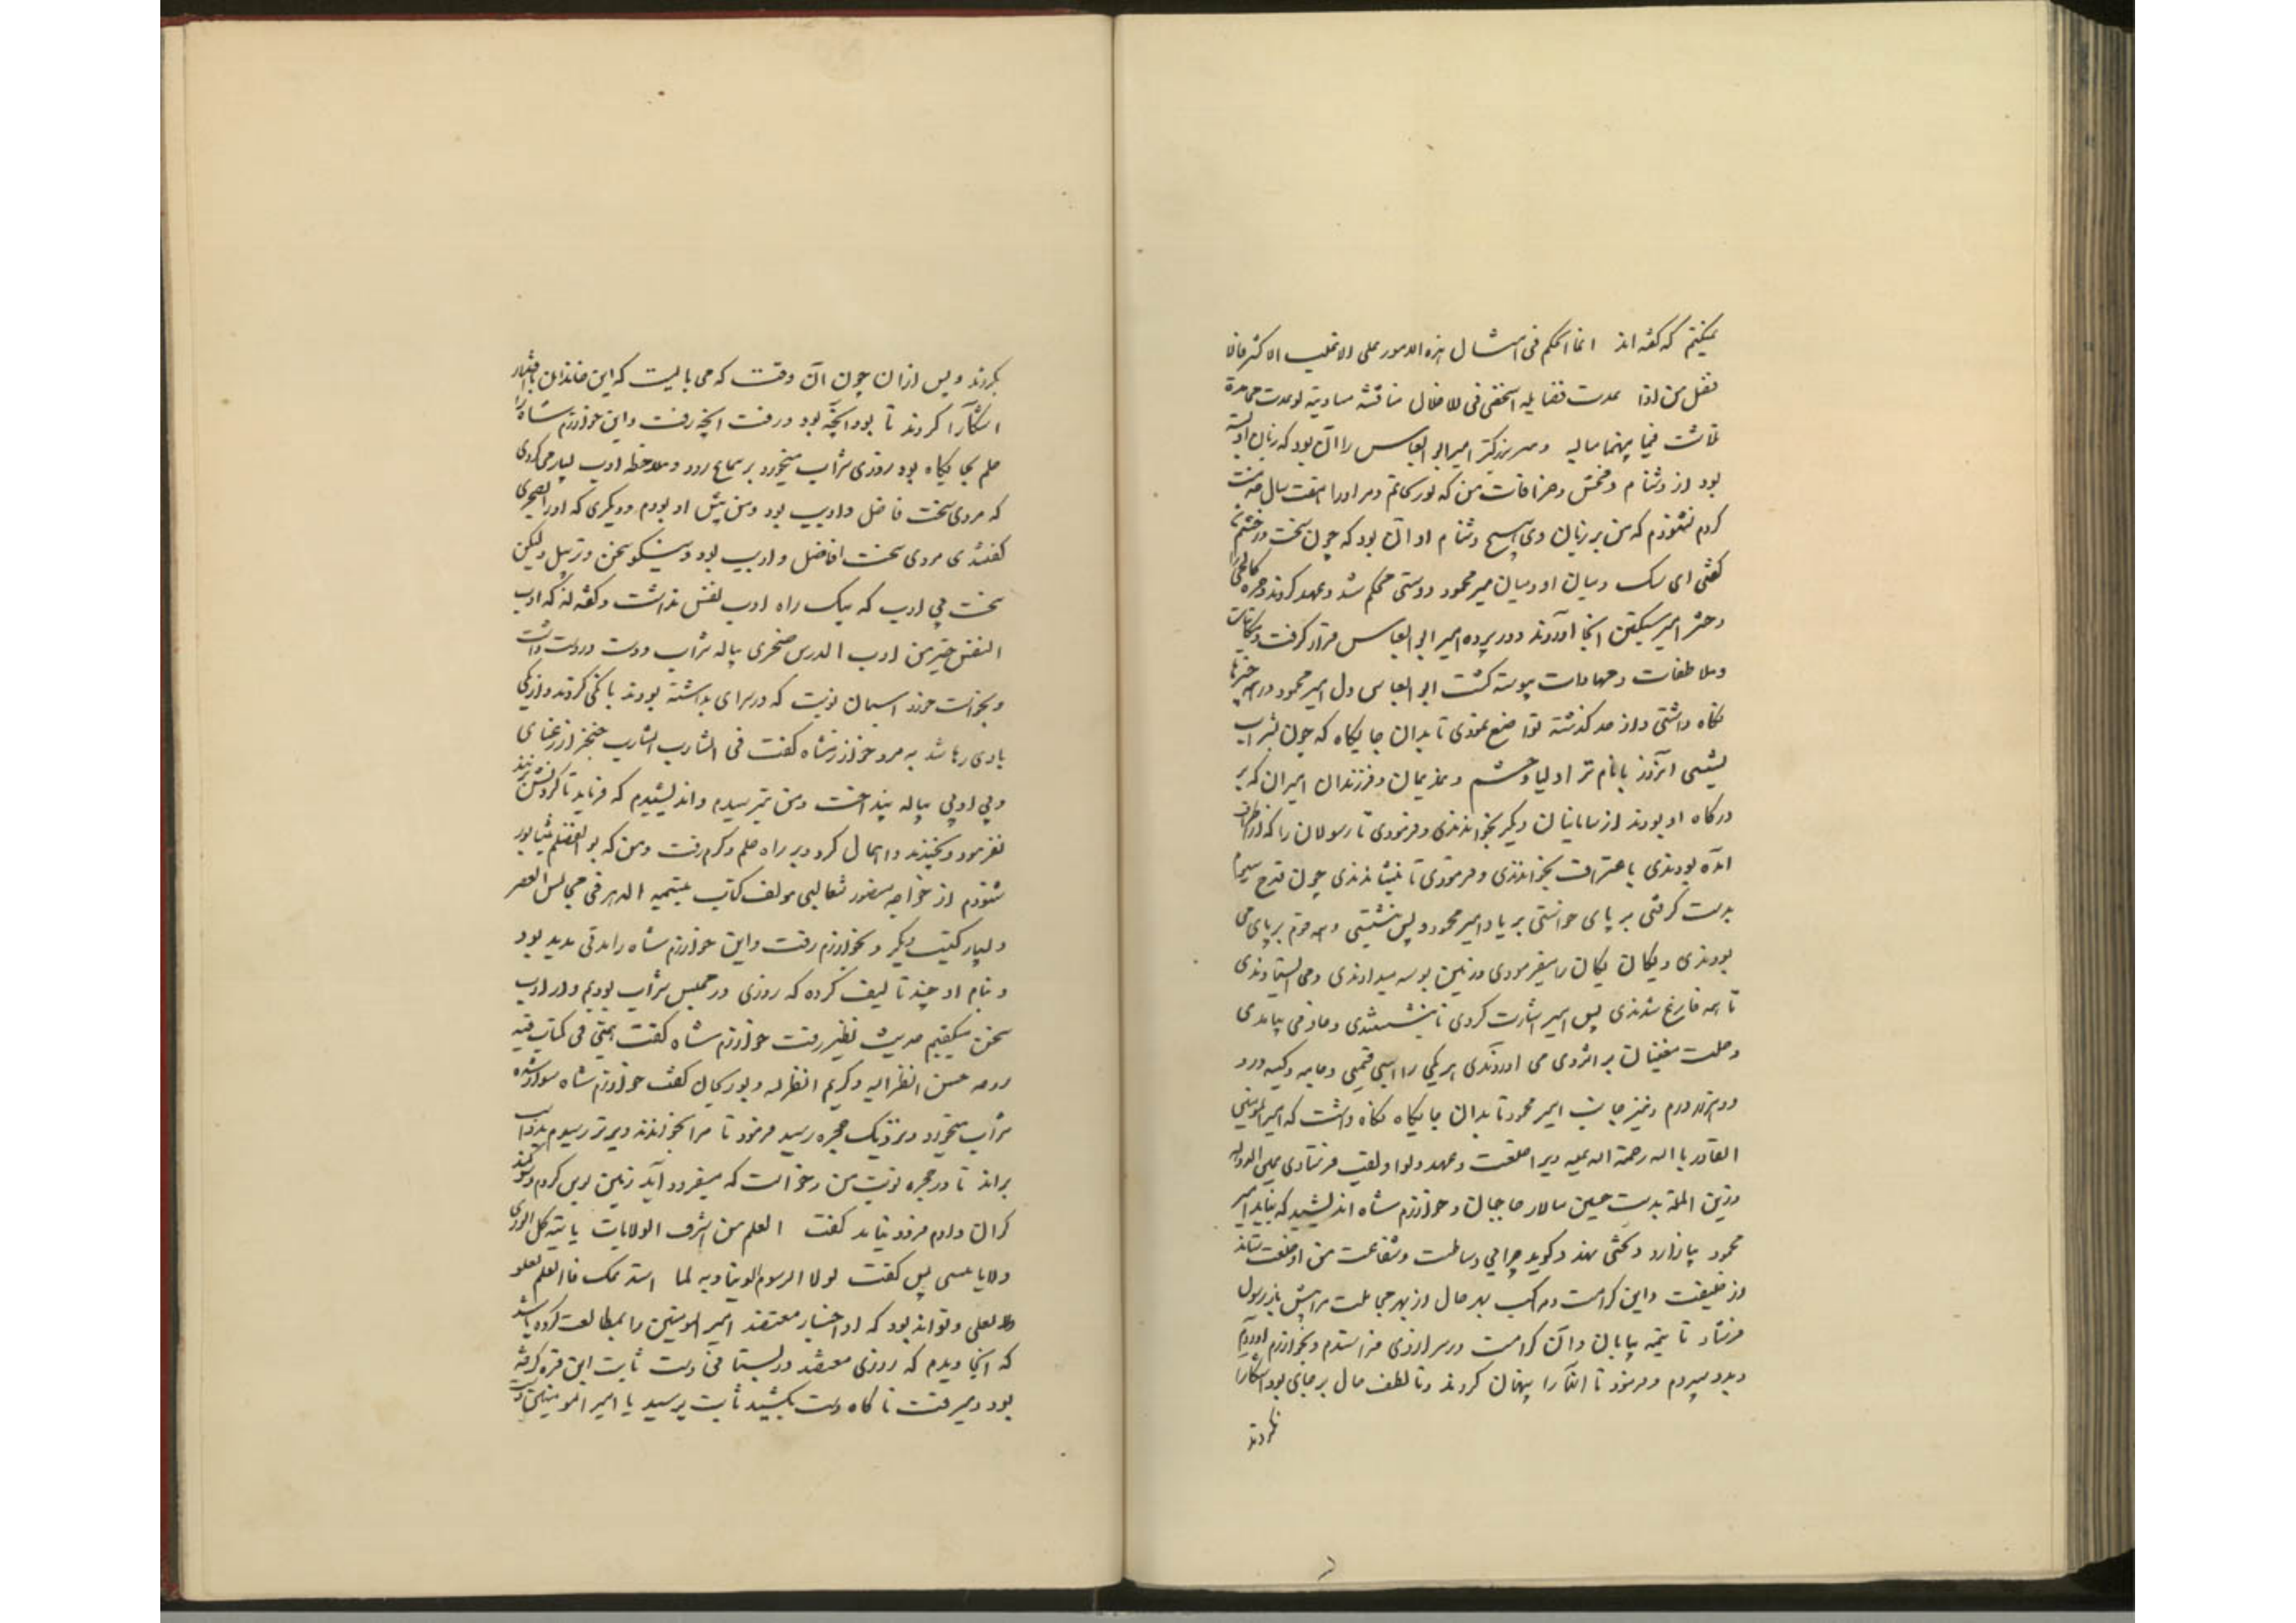 نمیکنم که گفته‌اند انما الحکم فی امثال هذه الامور علی الاغلب الاکثر
وهنر بزرکتر امیر ابو العباس را آن بود که زبان او بسته
بود از دشنام وفحش وخرافات من که بوریحانم ومر اورا هفت سال خدمت
کردم نشنودم که من بر زبان وی هیچ دشنام او آن بود که چون سخت در خشم شد
کفتی ای سک ومیان او ومیان امیر محمود دوستی محکم شد وعهد کردند
دختر امیر سبکتکین آنجا آوردند ودر پرده امیر ابو العباس قرار کرفت ومکاتبات
وملاطفات ومهادات پیوسته کشت ابو العباس دل امیر محمود در همه چیزها
نکاه داشتی واز حد کذشته تواضع نمودی تا بدان جایکاه که چون بشراب
نشستی آنروز با نام‌تر اولیا وحشم وندیمان وفرزندان امیران که بر
درکاه او بودند از سامانیان ودیکر بخواندندی وفرمودی تا رسولان را که از اطراف
آمده بودندی بخواندندی وفرمودی تا بنشاندندی چون قدح سیم
بدست کرفتی بر پای خواستی بر یاد امیر محمود وپس بنشستی وهمه قوم بر پای می
بودندی ویکان یکان را میفرمودی وزمین بوسه میدادندی ومی ایستادندی
تا همه فارغ شدندی پس امیر اشارت کردی تا بنشستندی وخادمی بیامدی
وصلت مغنیان بر اثر وی می آوردندی هر یکی را اسبی قیمتی وجامه وکیسه درو
ده هزار درم ونیز جانب امیر محمود تا بدان جایکاه نکاه داشت که امیر المؤمنین
القادر بالله رحمة الله علیه ویرا خلعت وعهد ولوا ولقب فرستادی عین الدوله
وزین المله بدست حسین سالار حاجیان وخوارزم شاه اندیشید که نباید امیر
محمود بیازارد وبحثی نهد وکوید چرا بی وساطت وشفاعت من او خلعت ستاند
از خلیفت واین کرامت ومرتبت بهر حال از بهر مجاملت مرا پیش باز رسول
فرستاد تا نیمه بیابان وآن کرامت در سر از وی فرا ستدم وبخوارزم آوردم
وبدو سپردم وفرمود تا آنرا پنهان کردند وتا لطف حال بر جای بود آشکارا
نکردند
بکردند وپس از آن چون آن وقت که می بایست که این خاندان بافتد
آشکارا کردند تا بود آنچه بود ورفت آنچه رفت واین خوارزم شاه را
حلم بجایکاه بود روزی شراب میخورد بر سماع رود وملاحظه ادب بسیار می کردی
که مردی سخت فاضل وادیب بود ومن پیش او بودم ودیکری که اورا صخری
کفتندی مردی سخت فاضل وادیب بود ونیکو سخن وترسل ولیکن
سخت بی ادب که بیک راه ادب نفس نداشت وکفته‌اند که ادب
النفس خیر من ادب الدرس صخری پیاله شراب در دست داشت
وبخواست خورد اسپان نوبت که در سرای بداشته بودند بانکی کردند واز یکی
بادی رها شد به مرد خوارزمشاه کفت فی شارب الشارب صخری از رعنائی
وبی ادبی پیاله بینداخت ومن بترسیدم واندیشیدم که فرماید تا کردنش بزنند
نفرمود وبخندید واهمال کرد وبر راه حلم وکرم رفت ومن که بو الفضلم بنشابور
شنودم از خواجه منصور ثعالبی مولف کتاب یتیمه الدهر فی محاسن العصر
وبسیار کتب دیکر وبخوارزم رفت واین خوارزم شاه را مدتی ندیم بود
وبنام او چند تالیف کرده که روزی در مجلس شراب بودیم ودر ادب
سخن میکفتیم حدیث نظر رفت خوارزم شاه کفت همتی فی کتاب
حسن انظر الیه وکریم انظر له وبوریحان کفت خوارزم شاه سوار شده
شراب میخورد ونزدیک حجره رسید فرمود تا مرا بخواندند دیرتر رسیدم بدو اسب
براند تا در حجره نوبت من وخواست که میفرود آید زمین بوس کردم وسوکند
کران دادم فرود نیامد کفت العلم من اشرف الولایات یاتیه کل الوری
ولا یاتی پس کفت لولا الرسوم الدنیاویه لما استدعیتک فالعلم یعلو
ولا یعلی وتواند بود که او اخبار معتضد امیر المومنین را مطالعت کرده باشد
که آنجا دیدم که روزی معتضد در بستانی دست ثابت ابن قره کرفته
بود ومیرفت ناکاه دست بکشید ثابت پرسید یا امیر المومنین